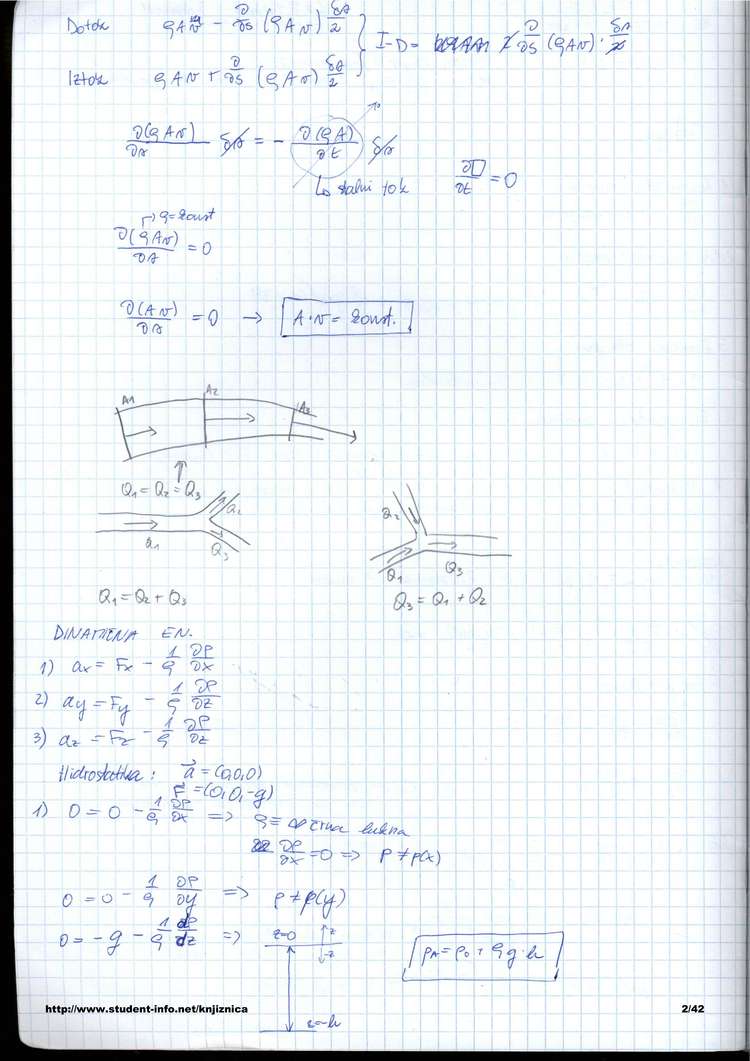 Dotok ρAv - ∂/∂s (ρAv) δs/2
Iztok ρAv + ∂/∂s (ρAv) δs/2
I-D = 2 ∂/∂s (ρAv) · δs/2
∂(ρAv)/∂s δs = - ∂(ρA)/∂t δs
↳ stalni tok ∂□/∂t = 0
↱ ρ=konst
∂(ρAv)/∂s = 0
∂(Av)/∂s = 0 → A·v = konst.
A1 A2 A3
Q1 = Q2 = Q3
Q1 Q2 Q3
Q1 = Q2 + Q3
Q2 Q1 Q3
Q3 = Q1 + Q2
DINAMIČNA EN.
1) ax = Fx - 1/ρ ∂P/∂x
2) ay = Fy - 1/ρ ∂P/∂z
3) az = Fz - 1/ρ ∂P/∂z
Hidrostatika: a = (0,0,0)
F = (0,0,-g)
1) 0 = 0 - 1/ρ ∂P/∂x ⇒
∂P/∂x = 0 ⇒ P ≠ p(x)
0 = 0 - 1/ρ ∂P/∂y ⇒ P ≠ p(y)
0 = -g - 1/ρ dP/dz ⇒
z=0 ↑z ↓-z
z=-h
PA = P0 + ρg·h
http://www.student-info.net/knjiznica 2/42